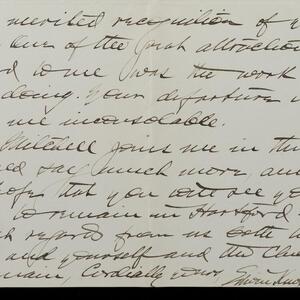 merited recognition of y
One of the great attraction
d to me was the work
doing. Your departure
me inconsolable.
Mitchell joins me in this
say much more, and
that you will see you
to remain in Hartford
regards from us both
and yourself and the
main, Cordially yours,
Edwin